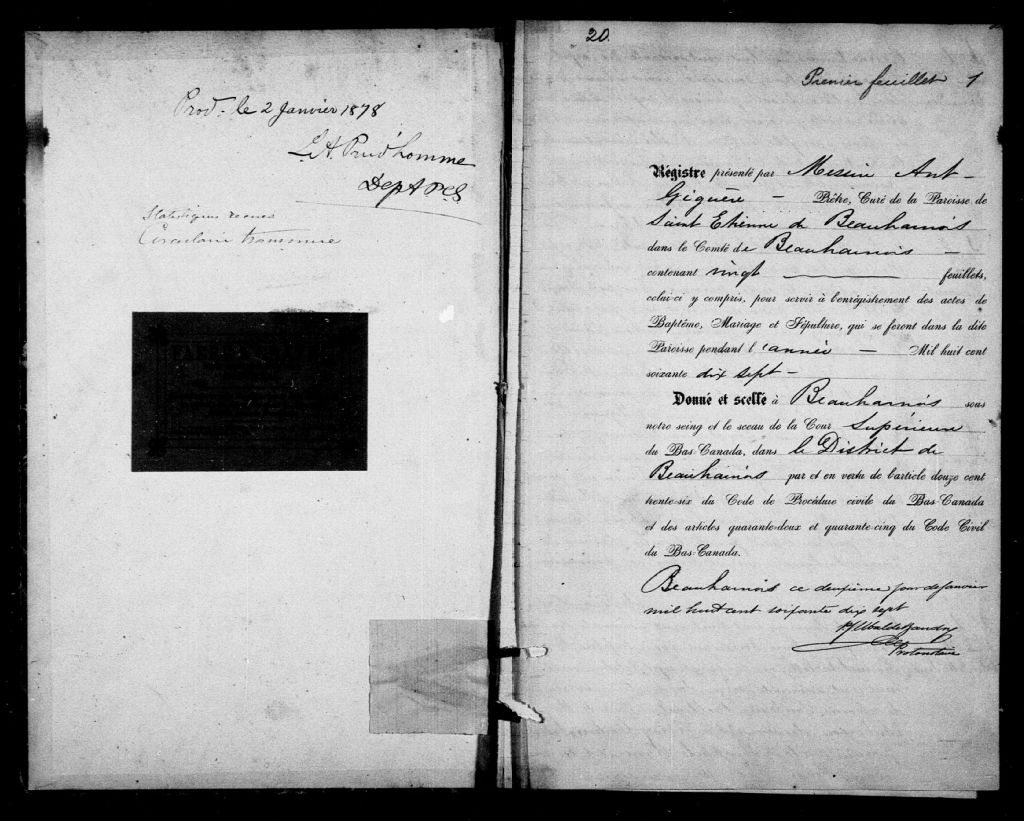 Prod. le 2 Janvier 1878
L. A. Prud'homme
Dept P.C.S
Statistiques reçues
Circulaire transmise
20
Premier feuillet 1
Régistre présenté par Messire Ant
Giguère — Prêtre, Curé de la Paroisse de
Saint Etienne de Beauharnois
dans le Comté de Beauharnois —
contenant vingt — feuillets,
celui-ci y compris, pour servir à l'enrégistrement des actes de
Baptême, Mariage et Sépulture, qui se feront dans la dite
Paroisse pendant l'année — Mil huit cent
soixante dix sept —
Donné et scellé à Beauharnois sous
notre seing et le sceau de la Cour Supérieure
du Bas-Canada, dans le District de
Beauharnois par et en vertu de l'article douze cent
trente-six du Code de Procédure civile du Bas-Canada
et des articles quarante-deux et quarante-cinq du Code Civil
du Bas-Canada.
Beauharnois ce deuxième jour de Janvier
mil huit cent soixante dix sept
Ubalde Baudry
Protonotaire